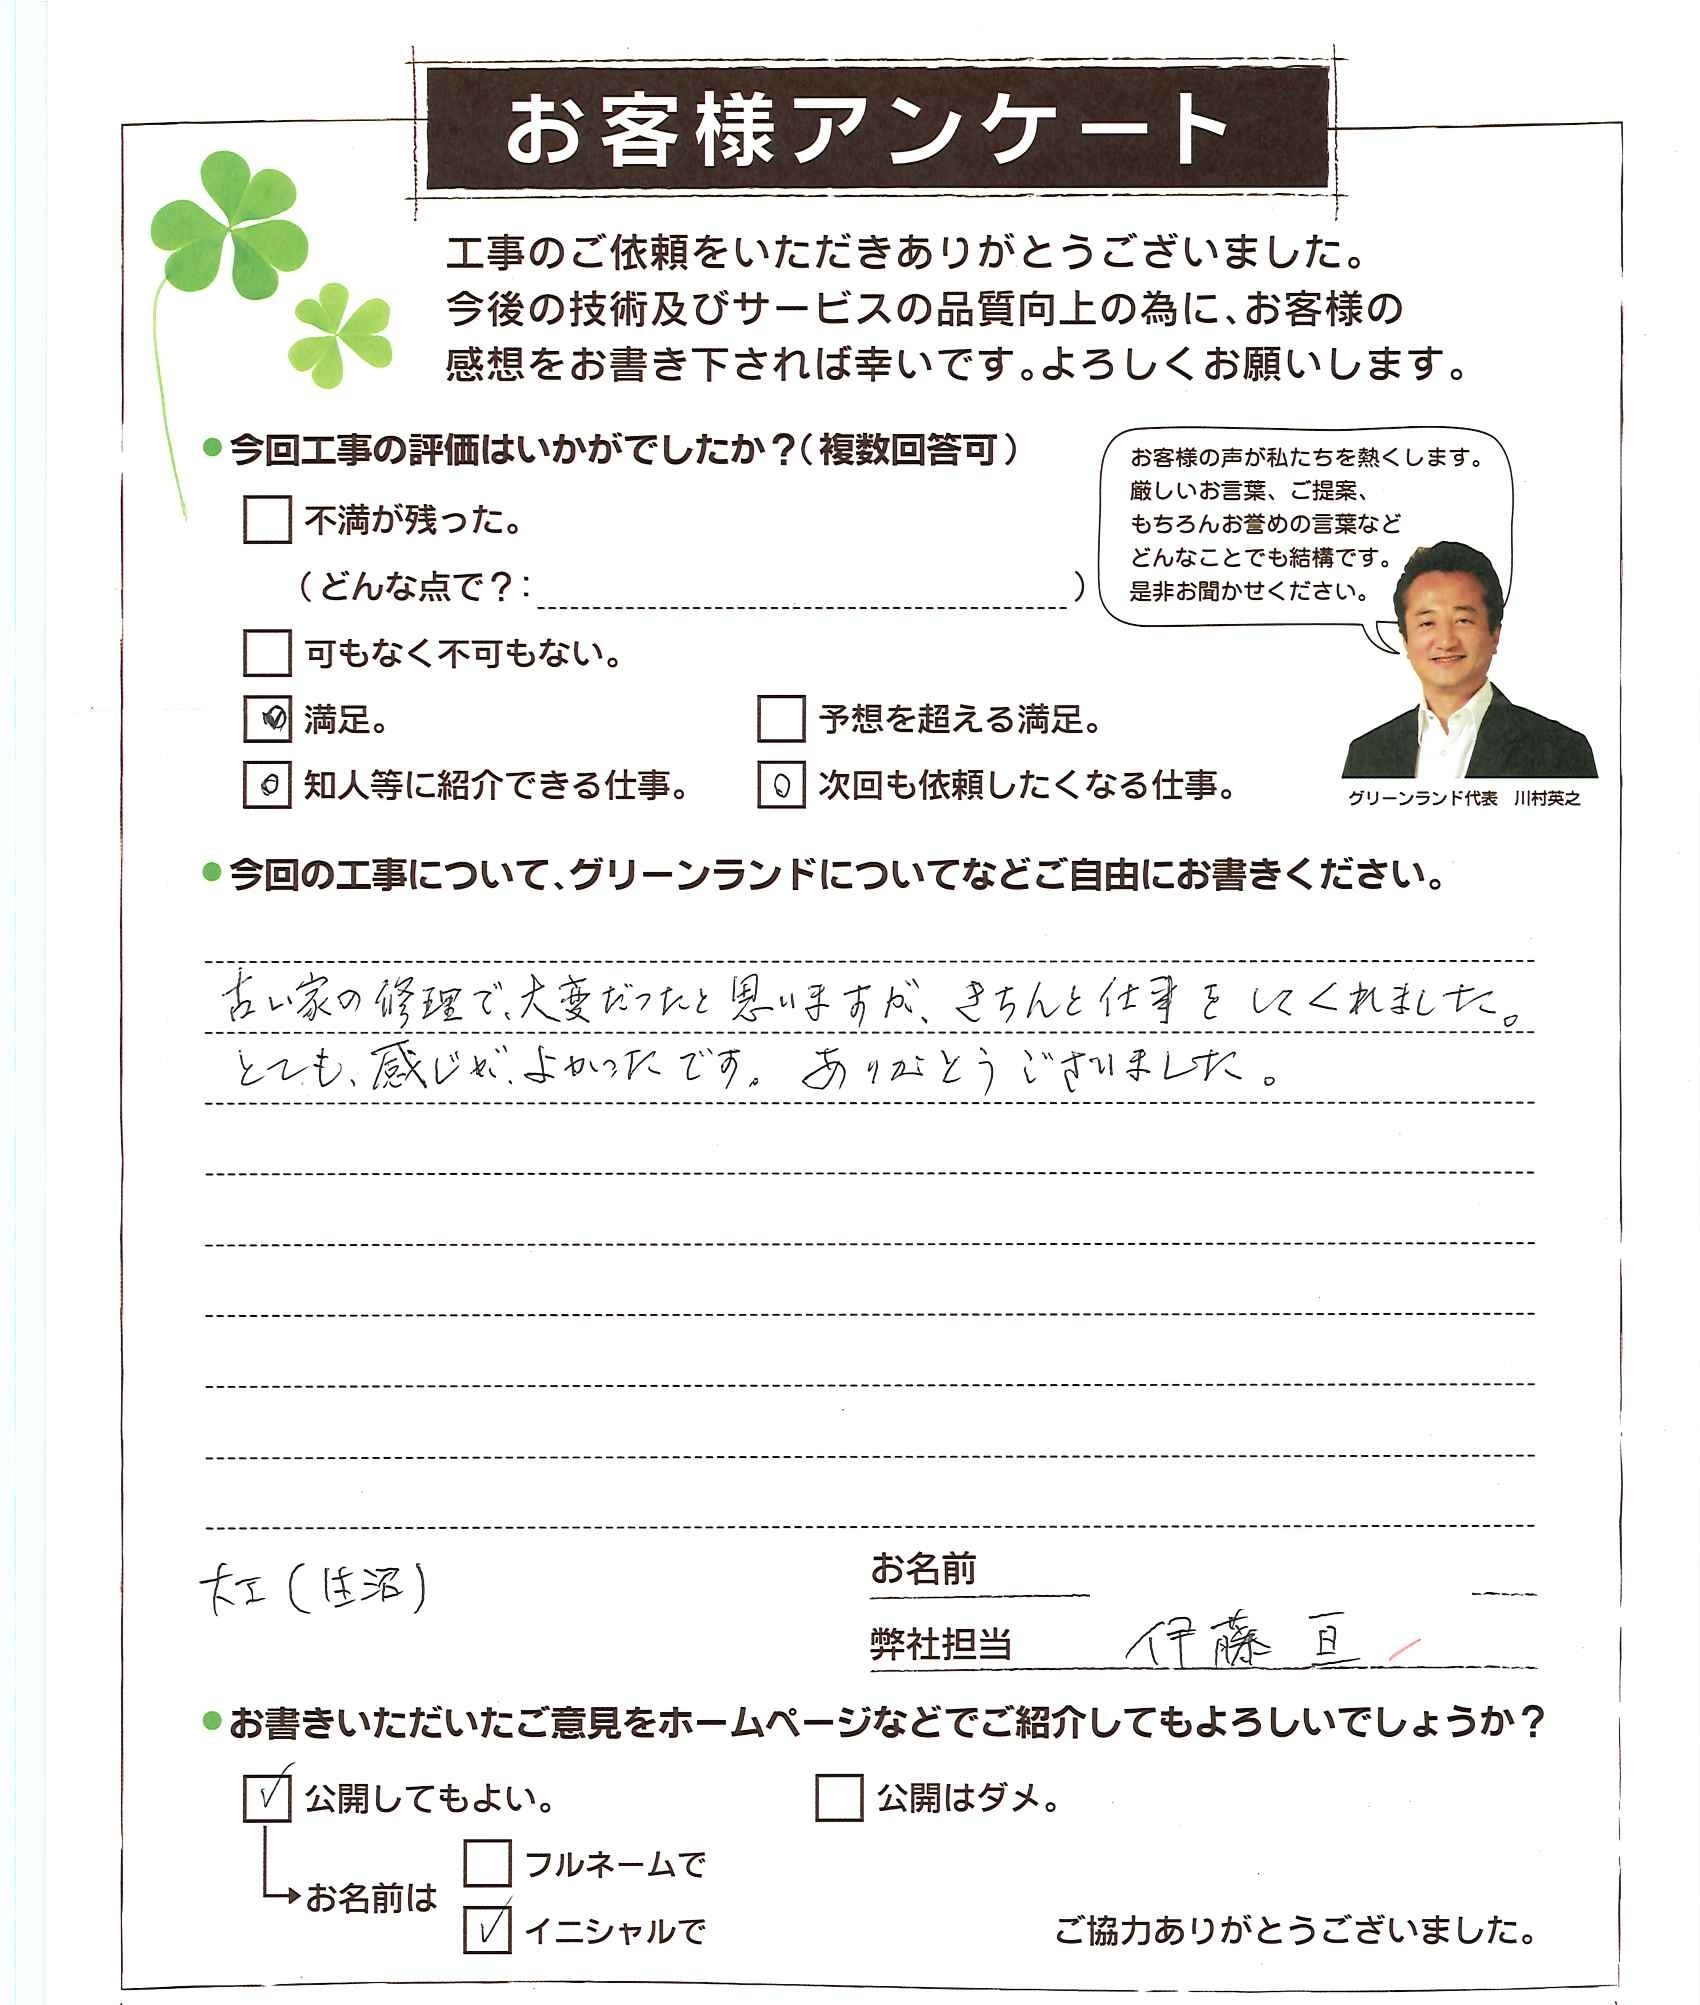 お客様アンケート
工事のご依頼をいただきありがとうございました。
今後の技術及びサービスの品質向上の為に、お客様の
感想をお書き下されば幸いです。よろしくお願いします。
●今回工事の評価はいかがでしたか？（複数回答可）
不満が残った。
（どんな点で？：　）
可もなく不可もない。
満足。
予想を超える満足。
知人等に紹介できる仕事。
次回も依頼したくなる仕事。
お客様の声が私たちを熱くします。
厳しいお言葉、ご提案、
もちろんお誉めの言葉など
どんなことでも結構です。
是非お聞かせください。
グリーンランド代表　川村英之
●今回の工事について、グリーンランドについてなどご自由にお書きください。
古い家の修理で、大変だったと思いますが、きちんと仕事をしてくれました。
とても、感じが、よかったです。ありがとうございました。
大工
お名前
弊社担当　伊藤 亘
●お書きいただいたご意見をホームページなどでご紹介してもよろしいでしょうか？
公開してもよい。
公開はダメ。
お名前は
フルネームで
イニシャルで
ご協力ありがとうございました。